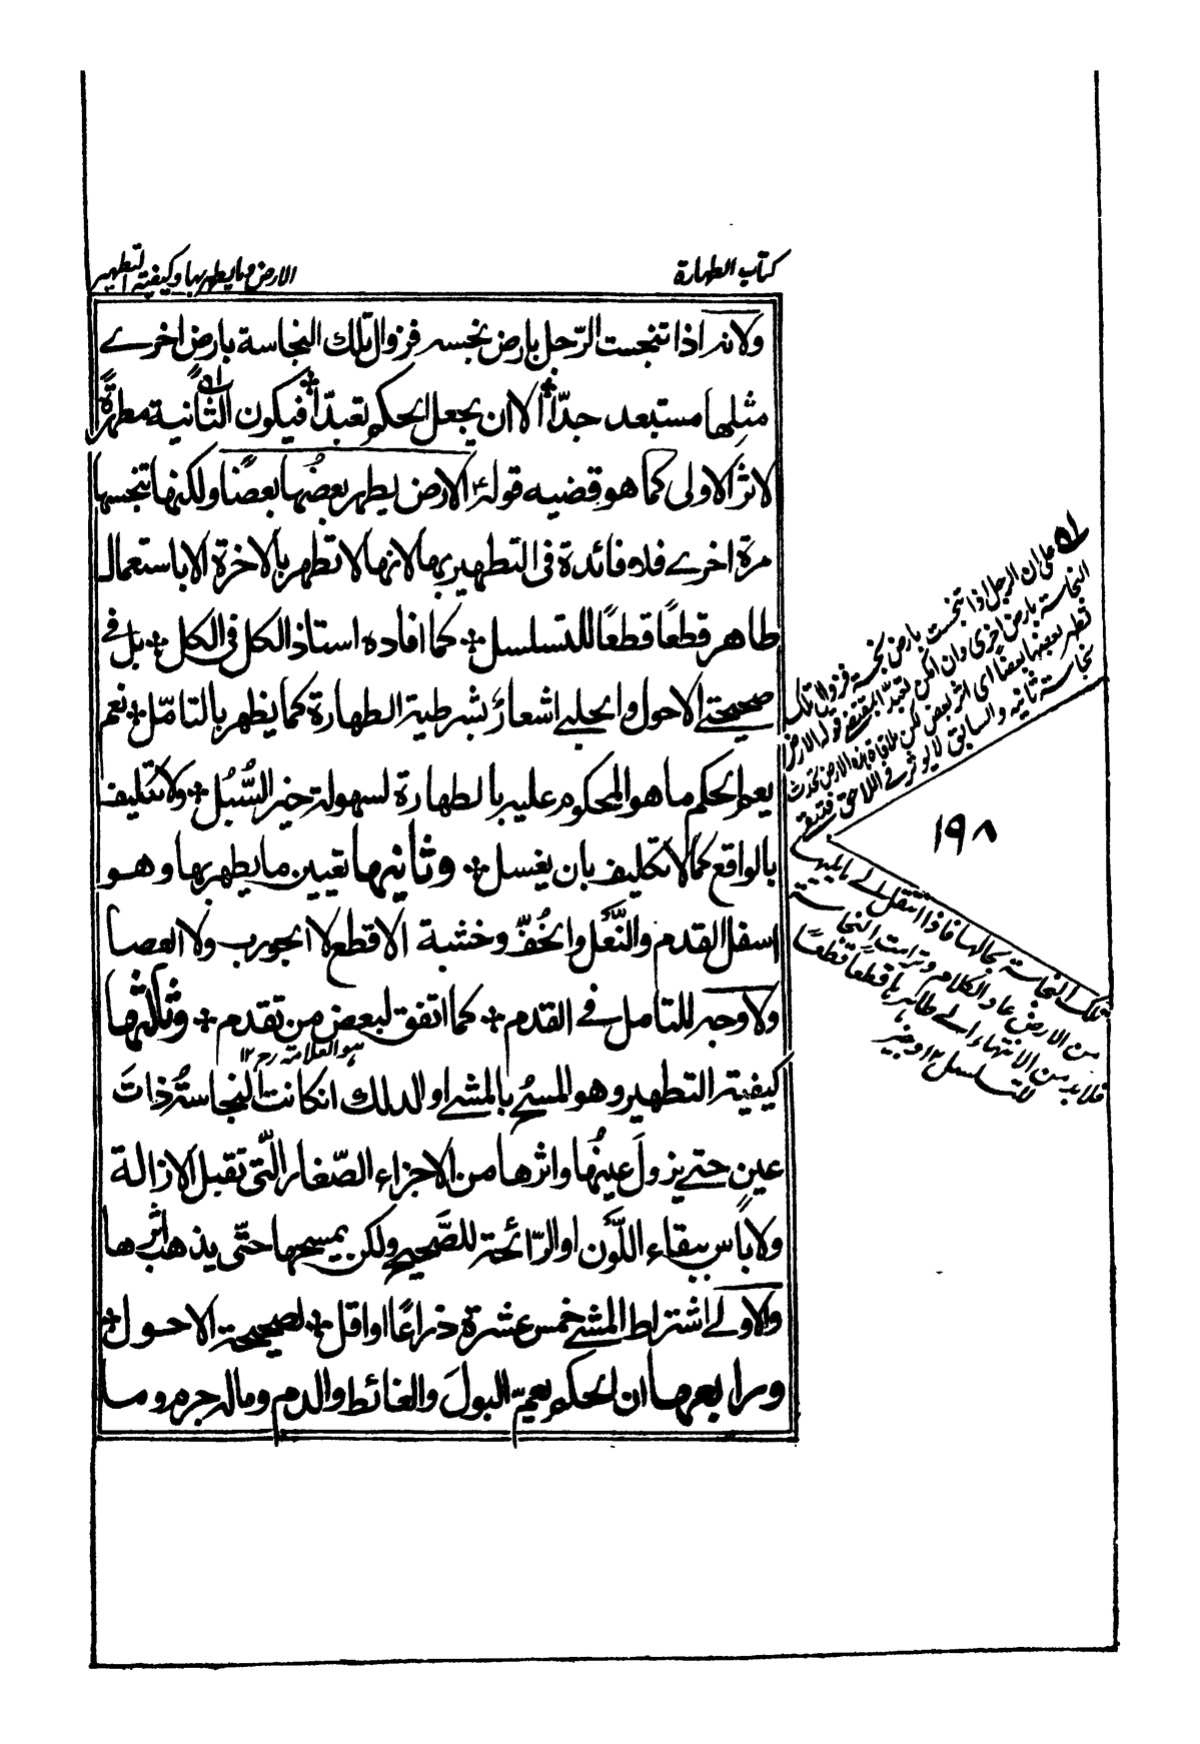 كتاب الطهارة
الارض وما يطهر بها وكيفية التطهير
ولانه اذا تنجست الرّجل بارض نجسه فزوال تلك النجاسة بارض اخرے
مثلها مستبعد جدّاً الا ان يجعل الحكم تعبدّاً فيكون الثّانية مطهرةً
لاثر الاولى كما هو قضيه قوله ع الارض يطهر بعضُها بعضًا ولكنها تنجسها
مرة اخرے فلا فائدة فى التطهير بها لانها لا تطهر بالاخرة الا باستعمال
طاهر قطعًا قطعًا للتسلسل كما افاده استاذ الكل فى الكل بل فے
صحيحتے الاحول والحلبے اشعارٌ بشرطية الطهارة كما يظهر بالتامّل نعم
يعم الحكم ما هو المحكوم عليه بالطهارة لسهولة خير السُّبُل ولا تكليف
بالواقع كما لا تكليف بان يغسل وثانيها تعيين ما يطهر بها وهو
اسفل القدم والنَّعل والخُفّ وخشبة الاقطع لا الجورب ولا العصا
ولا وجه للتامل فے القدم كما اتفق لبعض من تقدم وثالثها
هو العلامة رح ١٢
كيفية التطهير وهو المسحُ بالمشے او الدلك انكانت النجاسةُ ذاتَ
عين حتے يزولَ عينُها واثرها من الاجزاء الصّغار الّتى تقبل الازالة
ولا بأس ببقاء اللَّون او الرّائحة للصَّحيح ولكن يمسحها حتّى يذهب اثرها
والاولے اشتراط المشے خمس عشرة ذراعًا او اقل لصحيحة الاحول
ورابعها ان الحكم يعمّ البولَ والغائط والدم وماله جرم وما
على ان الرجل اذا تنجست بارض نجسة فزوال تلك
النجاسة بارض اخرى وان امكن تعبدّا لمقتضے قوله الارض
تطهر بعضها بعضًا اى اثر بعض لكن ملاقاة هذه الارض تحدث
نجاسة ثانية والسابق لا يوثر فے اللاحق فتبقے
١٩٨
تلك النجاسة بحالها فاذا انتقل الے ما يليها
من الارض عاد الكلام وترامت النجاسة
فلابد من الانتهاء الے طاهر ها قطعًا قطعًا
للتسلسل ١٢ وخير